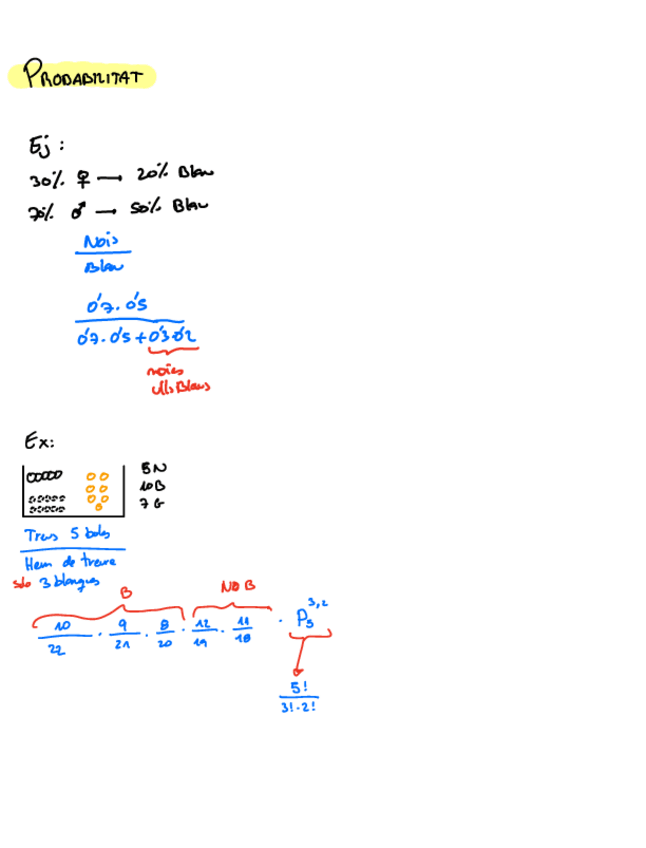 PROBABILITAT
Ej:
30% ♀ → 20% Blau
70% ♂ → 50% Blau
Nois
Blau
0'7 · 0'5
0'7 · 0'5 + 0'3 · 0'2
noies
ulls Blaus
Ex:
5 N
10 B
7 G
Treus 5 boles
Hem de treure
sólo 3 blanques
B
NO B
10/22 · 9/21 · 8/20 · 12/19 · 11/18 · P₅³,²
5!
3! · 2!